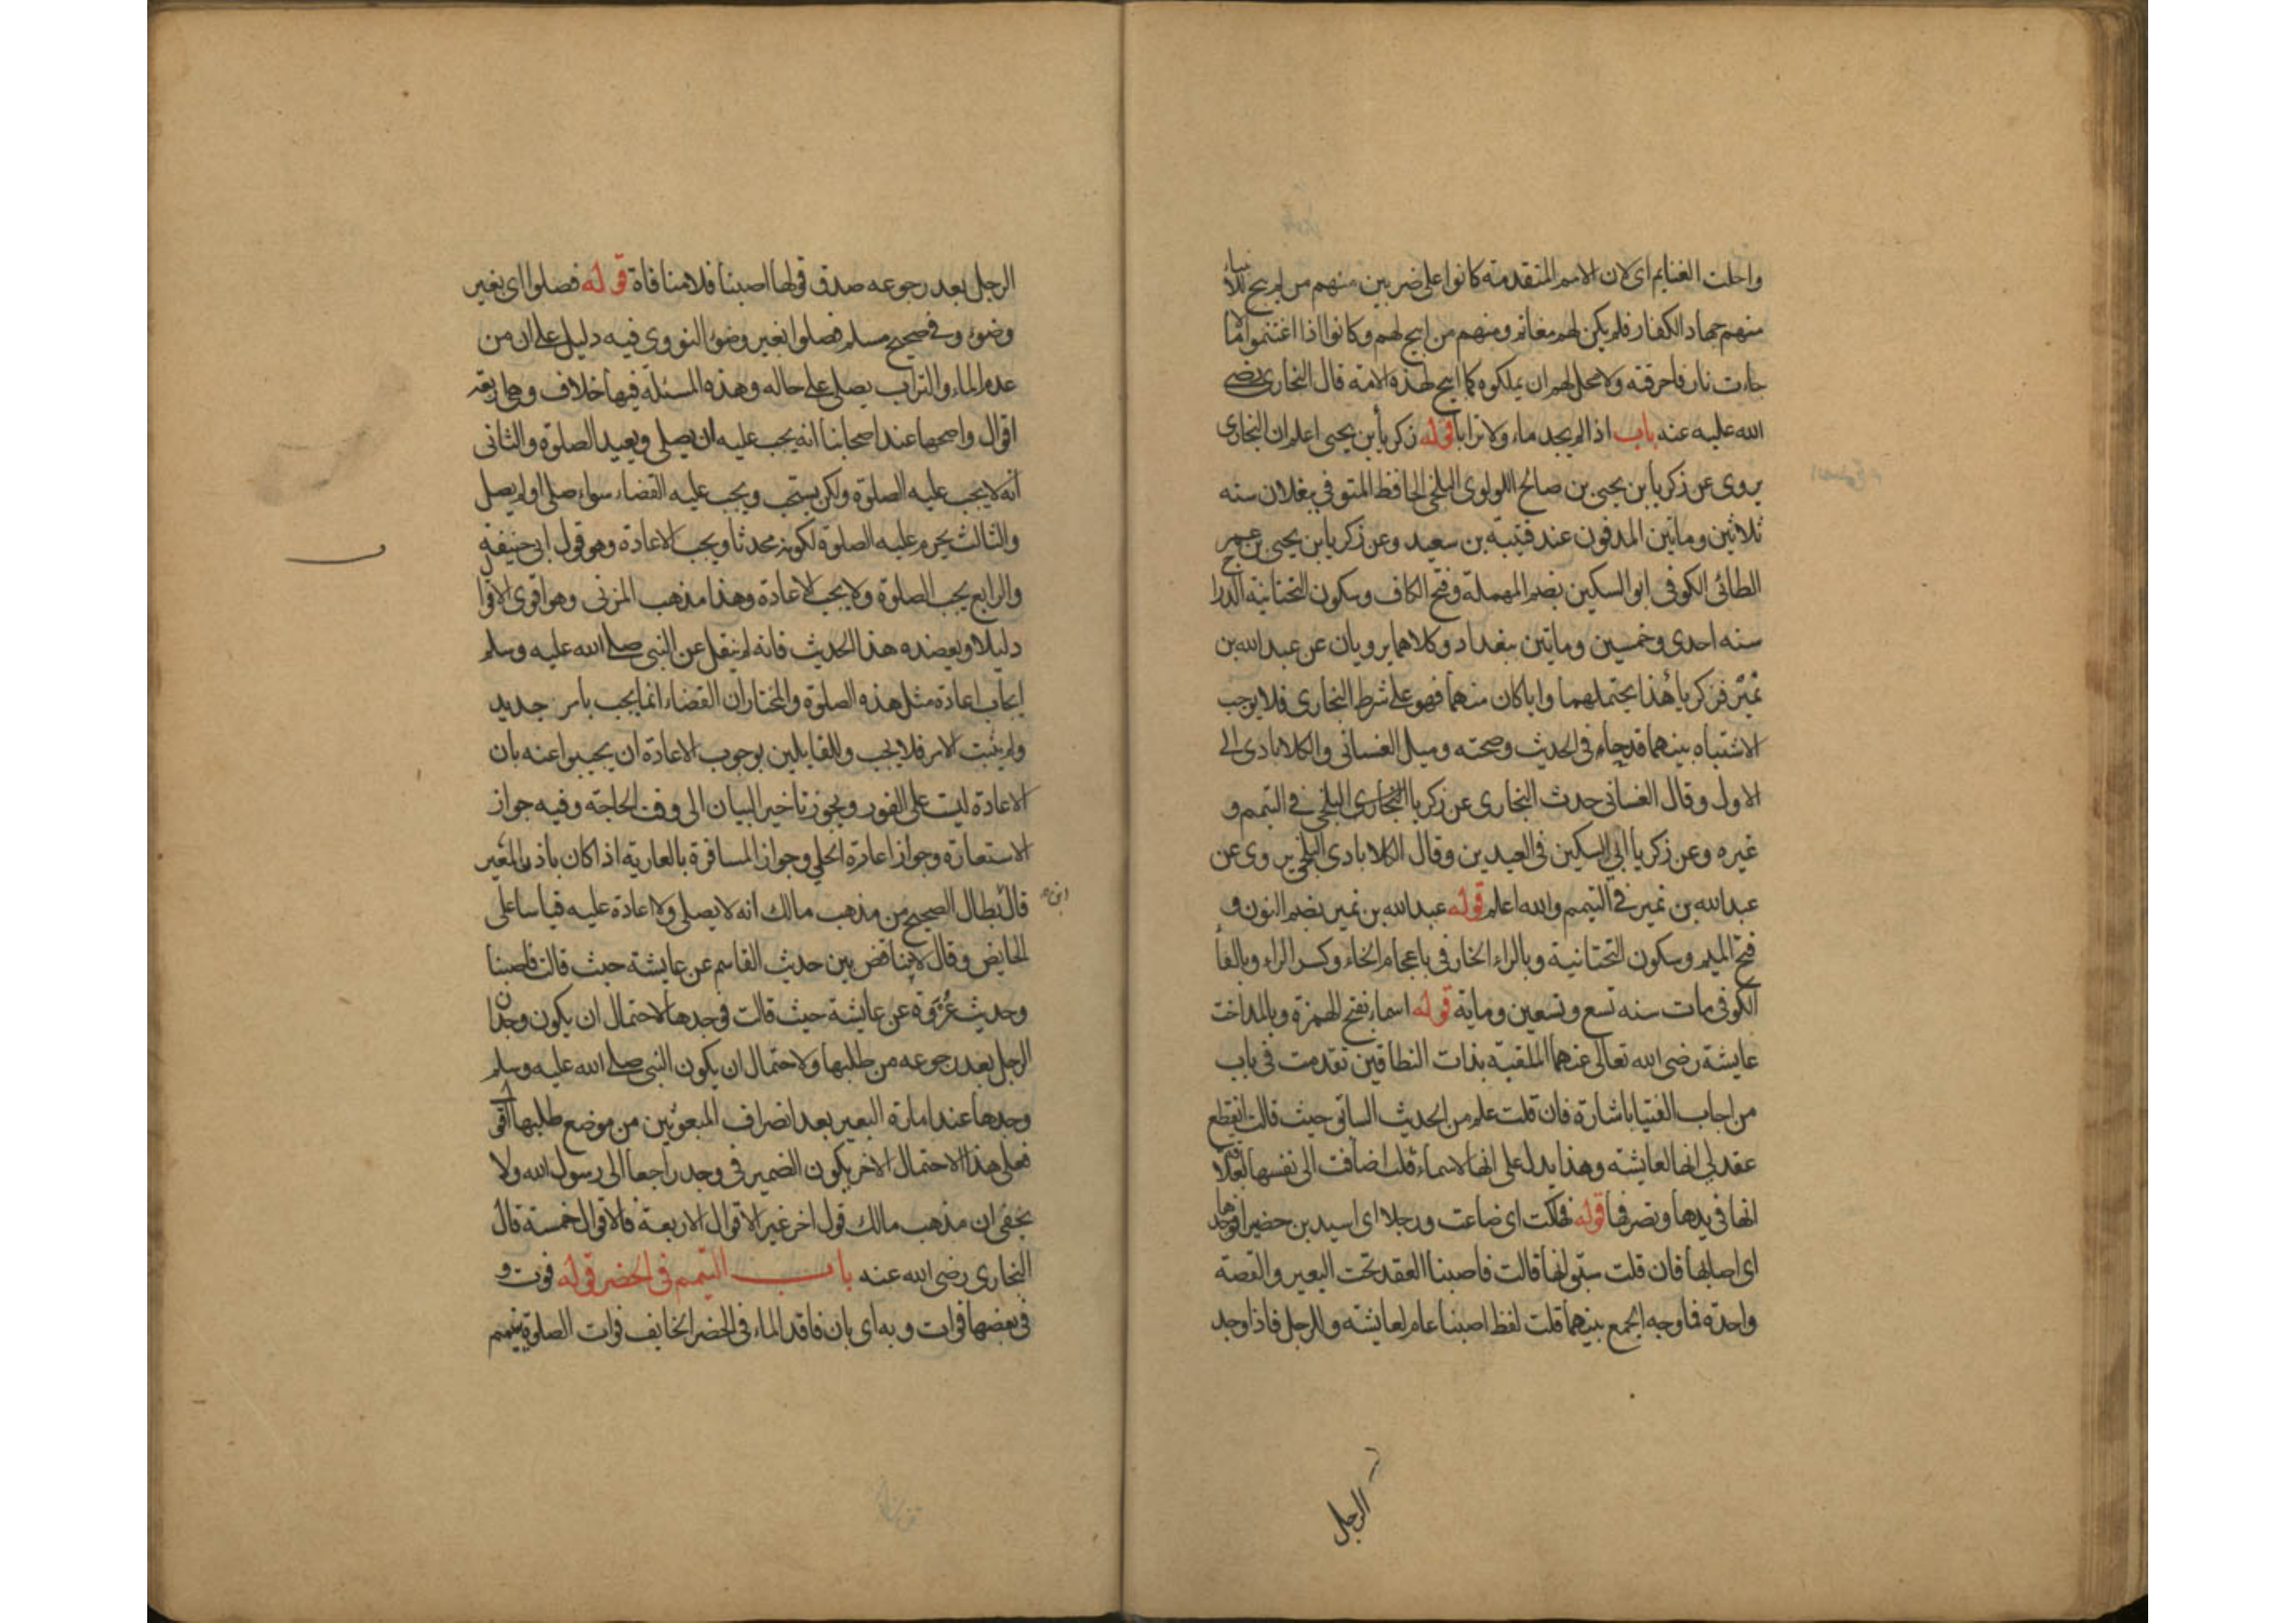 واحلت الغنايم اى لان الامم المتقدمة كانوا على ضربين منهم من لم يبح للانبياء
منهم جهاد الكفار فلم يكن لهم مغانم ومنهم من ابيح لهم وكانوا اذا اغتنموا مالا
جاءت نار فاحرقته ولا يحل لهم ان يملكوه كما ابيح لهذه الامة قال البخارى رضى
الله عليه عنه باب اذا لم يجد ماء ولا ترابا قوله زكريا بن يحيى اعلم ان البخارى
يروى عن زكريا بن يحيى بن صالح اللولوى البلخى الحافظ المتوفى ببغلان سنه
ثلاثين وماتين المدفون عند قتيبة بن سعيد وعن زكريا بن يحيى بن عمر
الطائى الكوفى ابو السكين بضم المهملة وفتح الكاف وسكون التحتانية
سنه احدى وخمسين وماتين ببغداد وكلاهما يرويان عن عبد الله بن
نمير فزكريا هذا يحتملهما وايا كان منهما فهو على شرط البخارى فلا يوجب
الاشتباه بينهما قدحا فى الحديث وصحته وميل الغسانى والكلابادى الى
الاول وقال الغسانى حدث البخارى عن زكريا البلخى فى التيمم و
غيره وعن زكريا ابى السكين فى العيدين وقال الكلابادى البلخى يروى عن
عبد الله بن نمير فى التيمم والله اعلم قوله عبد الله بن نمير بضم النون و
فتح الميم وسكون التحتانية وبالراء الخارفى باعجام الخاء وكسر الراء وبالفا
الكوفى مات سنه تسع وتسعين وماية قوله اسماء بفتح الهمزة وبالمد اخت
عايشة رضى الله تعالى عنهما الملقبة بذات النطاقين تقدمت فى باب
من اجاب الفتيا باشارة فان قلت علم من الحديث السابق حيث قالت انقطع
عقد لى انها لعايشة وهذا يدل على انها لاسماء قلت اضافت الى نفسها بعلاقة
انها فى يدها وتصرفها قوله فهلكت اى ضاعت ورجلا اى اسيد بن حضير فوجدها
اى اصابها فان قلت سبق انها قالت فاصبنا العقد تحت البعير والقصة
واحدة فما وجه الجمع بينهما قلت لفظ اصبنا عام لعايشة وللرجل فاذا وجد
الرجل
الرجل بعد رجوعه صدق قولها اصبنا فلا منافاة قوله فصلوا اى بغير
وضوء وفى صحيح مسلم فصلوا بغير وضوء النووى فيه دليل على ان من
عدم الماء والتراب يصلى على حاله وهذه المسئلة فيها خلاف وهى اربعة
اقوال واصحها عند اصحابنا انه يجب عليه ان يصلى ويعيد الصلوة والثانى
انه لا يجب عليه الصلوة ولكن يستحب ويجب عليه القضاء سواء صلى او لم يصل
والثالث يحرم عليه الصلوة لكونه محدثا ويجب الاعادة وهو قول ابى حنيفة
والرابع يجب الصلوة ولا يجب الاعادة وهذا مذهب المزنى وهو اقوى الاقوا
دليلا ويعضده هذا الحديث فانه لم ينقل عن النبى صلى الله عليه وسلم
ايجاب اعادة مثل هذه الصلوة والمختار ان القضاء انما يجب بامر جديد
ولم يثبت الامر فلا يجب وللقايلين بوجوب الاعادة ان يجيبوا عنه بان
الاعادة ليت على الفور ويجوز تاخير البيان الى وقت الحاجة وفيه جواز
الاستعارة وجواز اعارة الحلى وجواز المسافرة بالعارية اذا كان باذن المعير
قال ابن بطال الصحيح من مذهب مالك انه لا يصلى ولا اعادة عليه قياسا على
الحايض وقال لا يتناقض بين حديث القاسم عن عايشة حيث قالت فاصبنا
وحديث عروة عن عايشة حيث قالت فوجدها لاحتمال ان يكون وجدان
الرجل بعد رجوعه من طلبها ولاحتمال ان يكون النبى صلى الله عليه وسلم
وجدها عند اثارة البعير بعد انصراف المبعوثين من موضع طلبها
فعلى هذا الاحتمال الاخر يكون الضمير فى وجد راجعا الى رسول الله ولا
يخفى ان مذهب مالك قول اخر غير الاقوال الاربعة فالاقوال خمسة قال
البخارى رضى الله عنه باب التيمم فى الحضر قوله فوت و
فى بعضها فوات وبه اى بان فاقد الماء فى الحضر الخايف فوات الصلوة يتيمم